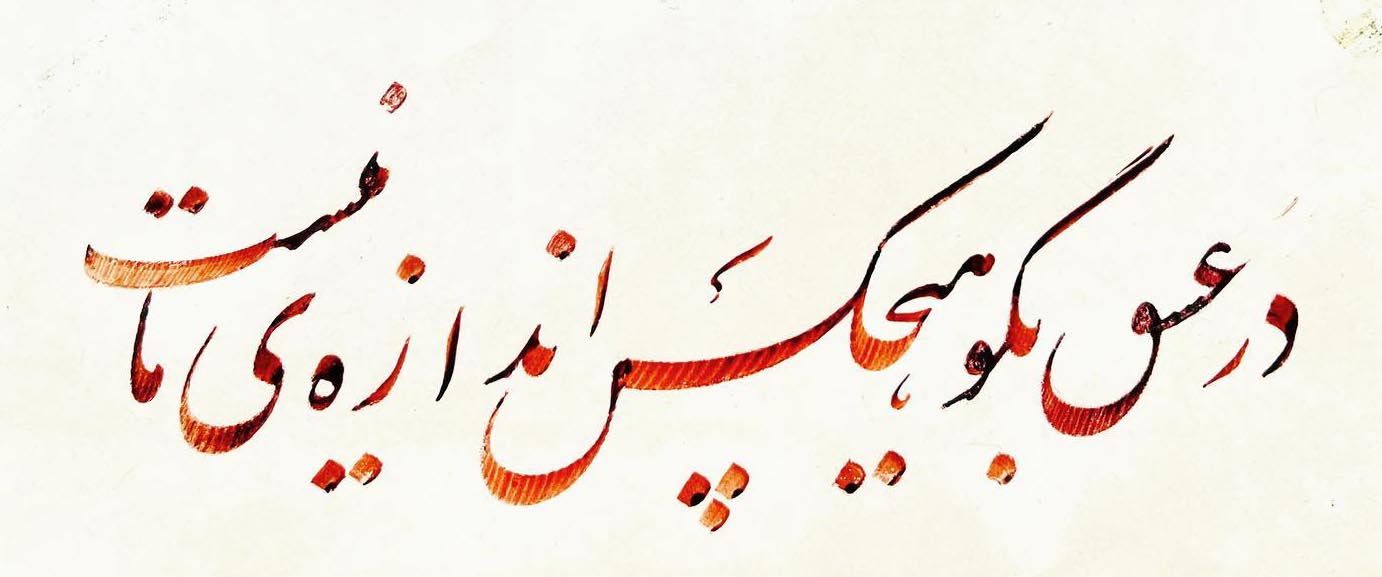 در عشق بگو هیچکس اندازه‌ی ما نیست